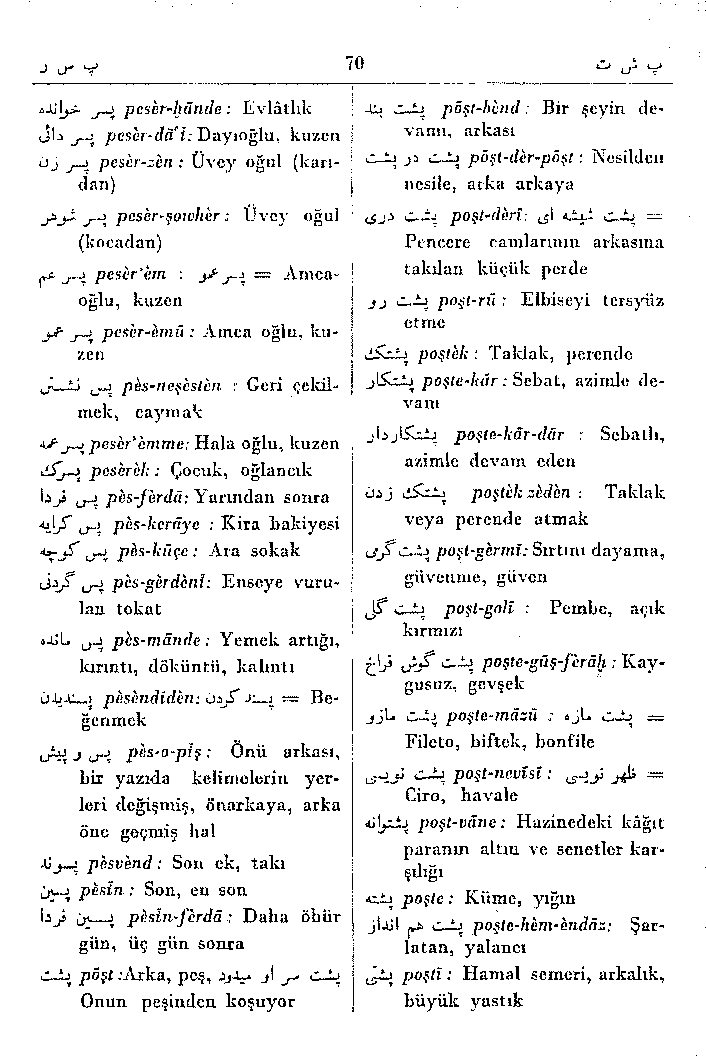 پ س ر 70 پ ش ت
پسر خوانده peser-ḫānde: Evlâtlık
پسر دائی peser-dā'ī: Dayıoğlu, kuzen
پسر زن pesèr-zèn : Üvey oğul (karı-
dan)
پسر شوهر pesèr-şowhèr : Üvey oğul
(kocadan)
پسر عم pesèr'èm : پسر عمو = Amca-
oğlu, kuzen
پسر عمو pesèr-èmū : Amca oğlu, ku-
zen
پس نشستن pès-neşèstèn : Geri çekil-
mek, caymak
پسر عمه pesèr'èmme: Hala oğlu, kuzen
پسرك pesèrèk : Çocuk, oğlancık
پس فردا pès-fèrdā: Yarından sonra
پس كرایه pès-kerāye : Kira bakiyesi
پس كوچه pès-kūçe : Ara sokak
پس گردنی pès-gèrdènī: Enseye vuru-
lan tokat
پس مانده pès-mānde : Yemek artığı,
kırıntı, döküntü, kalıntı
پسندیدن pèsèndīdèn: پسند كردن = Be-
ğenmek
پس و پیش pès-o-pīş : Önü arkası,
bir yazıda kelimelerin yer-
leri değişmiş, önarkaya, arka
öne geçmiş hal
پسوند pèsvènd : Son ek, takı
پسین pèsīn : Son, en son
پسین فردا pèsīn-fèrdā : Daha öbür
gün, üç gün sonra
پشت pöşt :Arka, peş, پشت سر او میدود
Onun peşinden koşuyor
پشت بند pöşt-bènd : Bir şeyin de-
vamı, arkası
پشت در پشت pöşt-dèr-pöşt : Nesilden
nesile, arka arkaya
پشت دری poşt-dèrī: پشت شیشه ای =
Pencere camlarının arkasına
takılan küçük perde
پشت رو poşt-rū : Elbiseyi tersyüz
etme
پشتك poştèk : Taklak, perende
پشتكار poşte-kār : Sebat, azimle de-
vam
پشتكاردار poşte-kār-dār : Sebatlı,
azimle devam eden
پشتك زدن poştèk zèdèn : Taklak
veya perende atmak
پشت گرمی poşt-gèrmī: Sırtını dayama,
güvenme, güven
پشت گلی poşt-golī : Pembe, açık
kırmızı
پشت گوش فراخ poşte-gūş-fèrāḫ : Kay-
gusuz, gevşek
پشت مازو poşte-māzū : پشت مازه =
Fileto, biftek, bonfile
پشت نویسی poşt-nevīsī : ظهر نویسی =
Ciro, havale
پشتوانه poşt-vāne : Hazinedeki kâğıt
paranın altın ve senetler kar-
şılığı
پشته poşte : Küme, yığın
پشت هم انداز poşte-hèm-èndāz: Şar-
latan, yalancı
پشتی poştī : Hamal semeri, arkalık,
büyük yastık